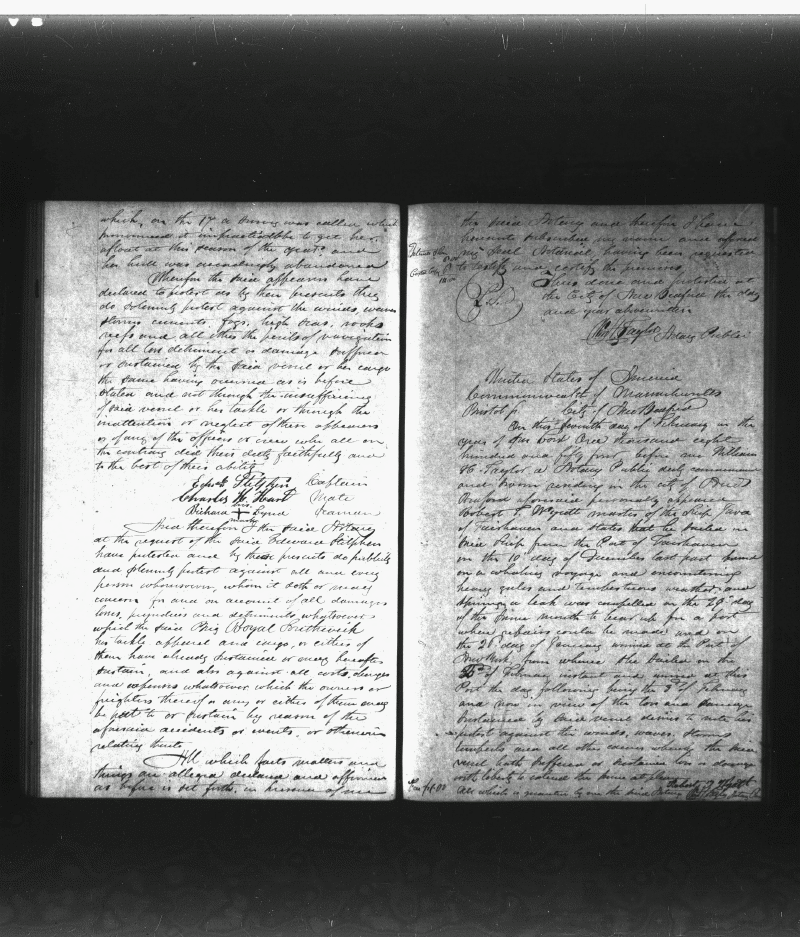 which, on the 17 a survey was called which
pronounced it impracticable to get her
afloat at this season of the year, and
her hull was accordingly abandoned
Wherefore the said appearers have
declared to protest as by these presents they
do solemnly protest against the winds, waves
storms currents, fogs, high seas, rocks
reefs and all other the perils of navigation
for all loss detriment or damage suffered
or sustained by the said vessel or her cargo
the same having occurred as is before
stated and not through the insufficiency
of said vessel or her tackle or through the
inattention or neglect of these appearers
or of any of the officers or crew who all on
the contrary did their duty faithfully and
to the best of their ability
Stilphen Captain
Charles H. Mate
his
Richard + Seaman
mark
And therefore I the said Notary
at the request of the said Edward Stilphen
have protested and by these presents do publicly
and solemnly protest against all and every
person whomsoever, whom it doth or may
concern for and on account of all damages
losses, prejudices and detriments, whatsoever
which the said Brig Royal Southwick
his tackle apparel and cargo, or either of
them have already sustained or may hereafter
sustain, and also against all costs, charges
and expenses whatsoever which the owners or
freighters thereof or any or either of them may
be put to or sustain by reason of the
aforesaid accidents or events, or otherwise
relating thereto.
All which facts matters and
things are alleged declared and affirmed
as before is set forth, in presence of me
the said Notary and therefore I have
hereunto subscribed my name and affixed
my Seal Notarial, having been requested
to testify and certify the premises.
Thus done and protested at
the City of New Bedford the day
and year abovewritten
Wm H Taylor Notary Public
United States of America
Commonwealth of Massachusetts
Bristol ss. City of New Bedford
On this seventh day of February in the
year of our Lord One thousand eight
hundred and fifty four before me William
H. Taylor a Notary Public duly commissioned
and sworn residing in the city of New
Bedford aforesaid personally appeared
Robert master of the Ship Java
of Fairhaven and states that he sailed in
said Ship from the Port of Fairhaven
on the 10 day of December last past bound
on a whaling voyage and encountering
heavy gales and tempestuous weather, and
springing a leak was compelled on the 29 day
of the same month to bear up for a port
where repairs could be made and on
the 21 day of January arrived at the Port of
New York, from whence she sailed on the
of February instant and arrived at this
Port the day following being the of February
and now in view of the loss and damage
sustained by said vessel desires to note his
protest against the winds, waves, storms
tempests and all other causes whereby the said
vessel hath suffered or sustained loss or damage
with liberty to extend the same at pleasure
All which is by me the said Notary